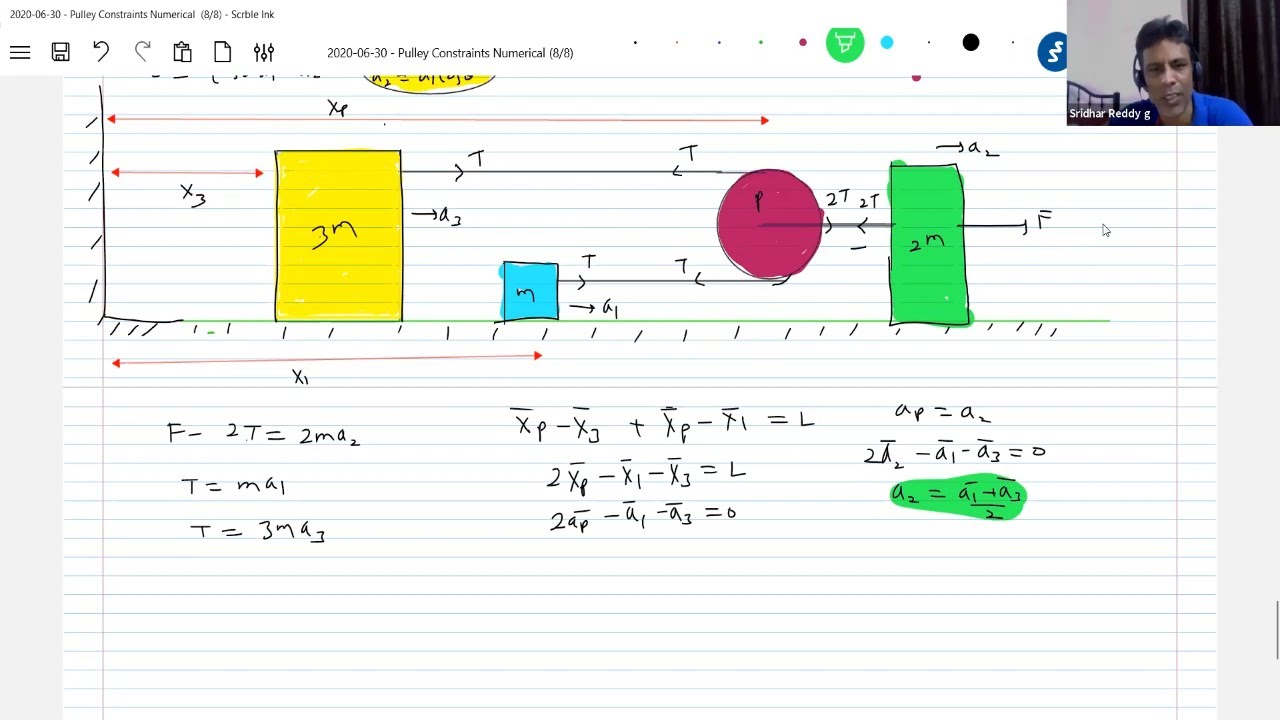 2020-06-30 - Pulley Constraints Numerical (8/8) - Scrble Ink
2020-06-30 - Pulley Constraints Numerical (8/8)
Sridhar Reddy g
xp
T
T
→a2
x3
→a3
p
2T
2T
F̅
3m
2m
T
T
m
→a1
x1
F - 2T = 2ma2
T = ma1
T = 3ma3
x̅p - x̅3 + x̅p - x̅1 = L
2x̅p - x̅1 - x̅3 = L
2a̅p - a̅1 - a̅3 = 0
ap = a2
2a̅2 - a̅1 - a̅3 = 0
a̅2 = (a̅1 + a̅3)/2